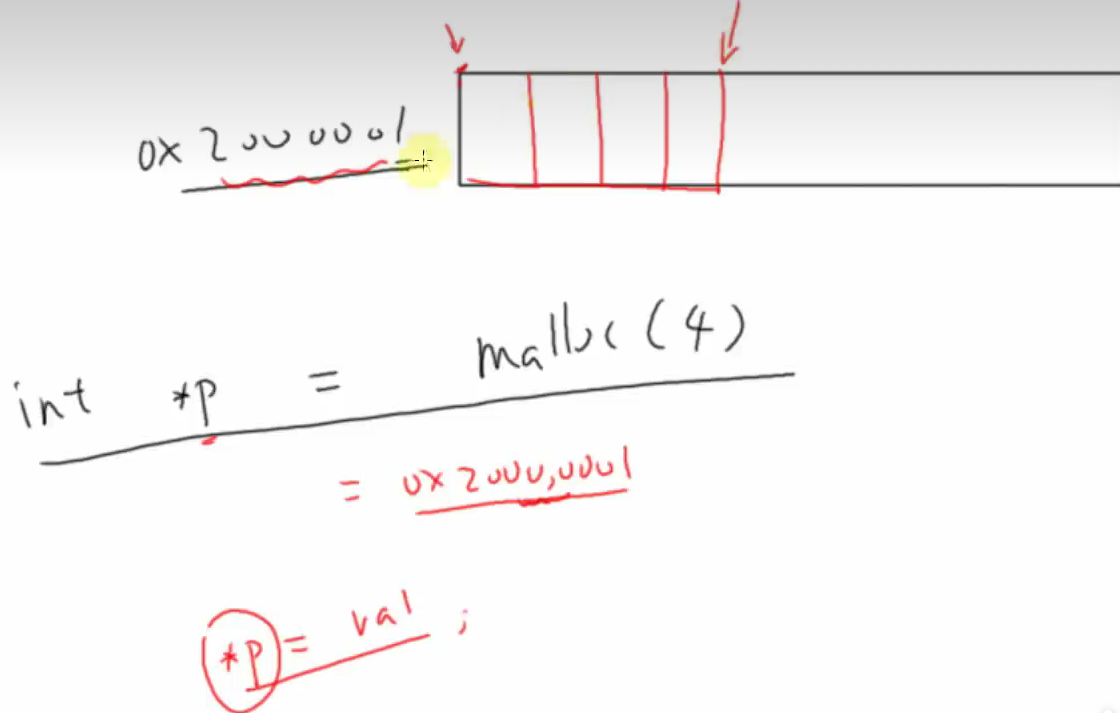 0x20000001
int *p = malloc(4)
= 0x2000,0001
*p = val ;